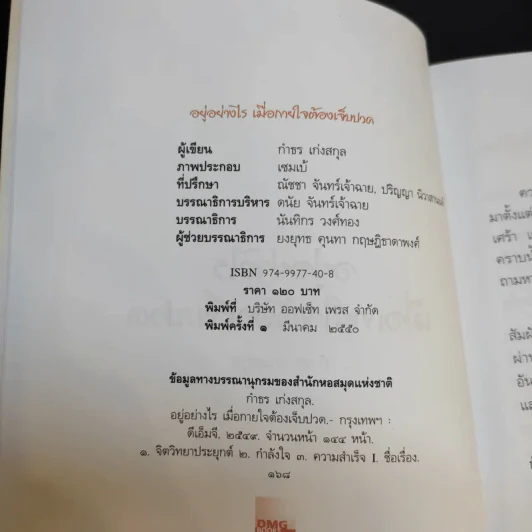 อยู่อย่างไร เมื่อกายใจต้องเจ็บปวด
ผู้เขียน กำธร เก่งสกุล
ภาพประกอบ เซมเบ้
ที่ปรึกษา ณัชชา จันทร์เจ้าฉาย, ปริญญา
บรรณาธิการบริหาร ดนัย จันทร์เจ้าฉาย
บรรณาธิการ นันทิกร วงศ์ทอง
ผู้ช่วยบรรณาธิการ ยงยุทธ คุนทา กฤษฎิธาดาพงศ์
ISBN 974-9977-40-8
ราคา ๑๒๐ บาท
พิมพ์ที่ บริษัท ออฟเซ็ท เพรส จำกัด
พิมพ์ครั้งที่ ๑ มีนาคม ๒๕๕๐
ข้อมูลทางบรรณานุกรมของสำนักหอสมุดแห่งชาติ
กำธร เก่งสกุล.
อยู่อย่างไร เมื่อกายใจต้องเจ็บปวด.- กรุงเทพฯ :
ดีเอ็มจี, ๒๕๔๙. จำนวนหน้า ๑๔๔ หน้า.
๑. จิตวิทยาประยุกต์ ๒. กำลังใจ ๓. ความสำเร็จ I. ชื่อเรื่อง.
๑๖๘
DMG
BOOKS
มาตั้งแต่
เศร้า
คราบน้ำ
ถามหา